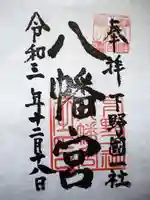 奉拝
下野國一社
八幡宮
令和三年十二月十八日